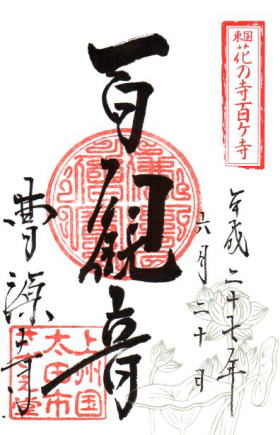 東国
花の寺百ケ寺
平成二十七年
六月二十日
百観音
曹源寺
上州国
太田市